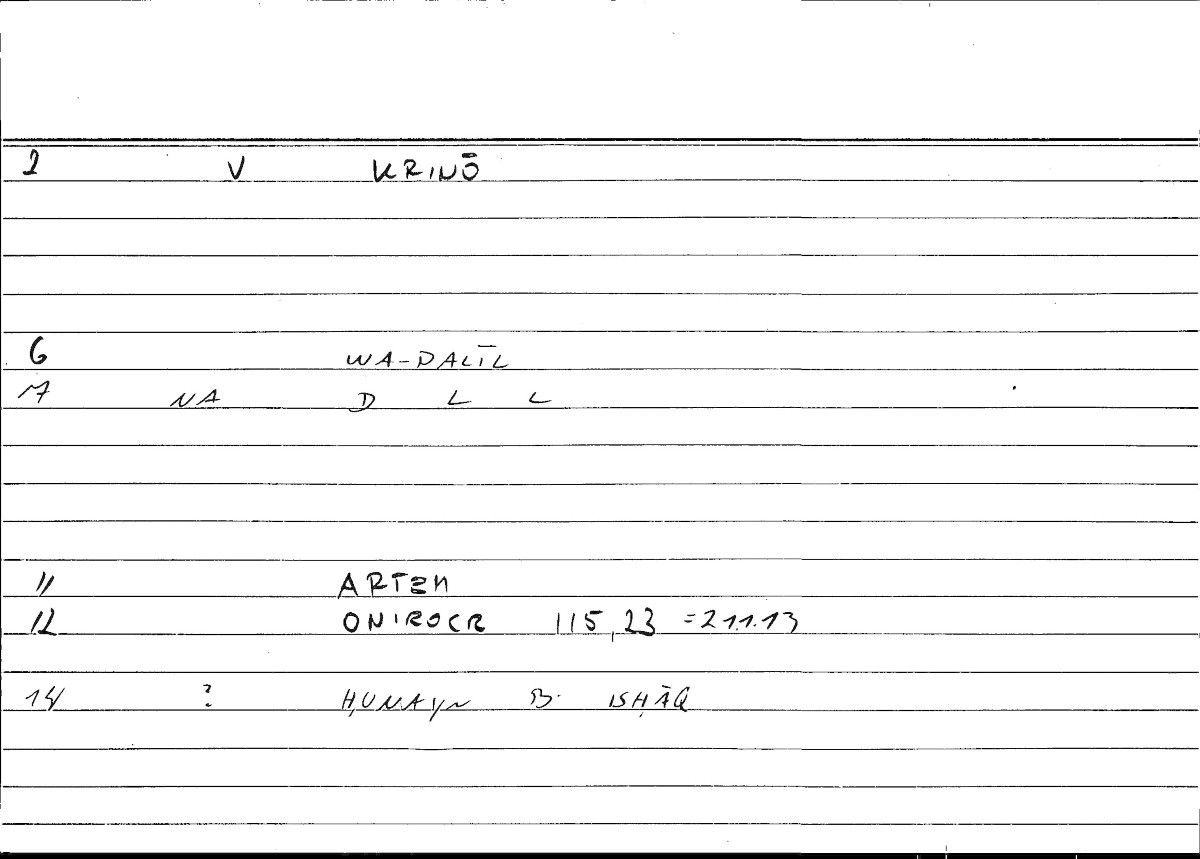 2 V KRINŌ
6 WA-DALĪL
7 NA D L L
11 ARTEM
12 ONIROCR 115,23 =211.13
14 ? ḤUNAYN B. ISḤĀQ